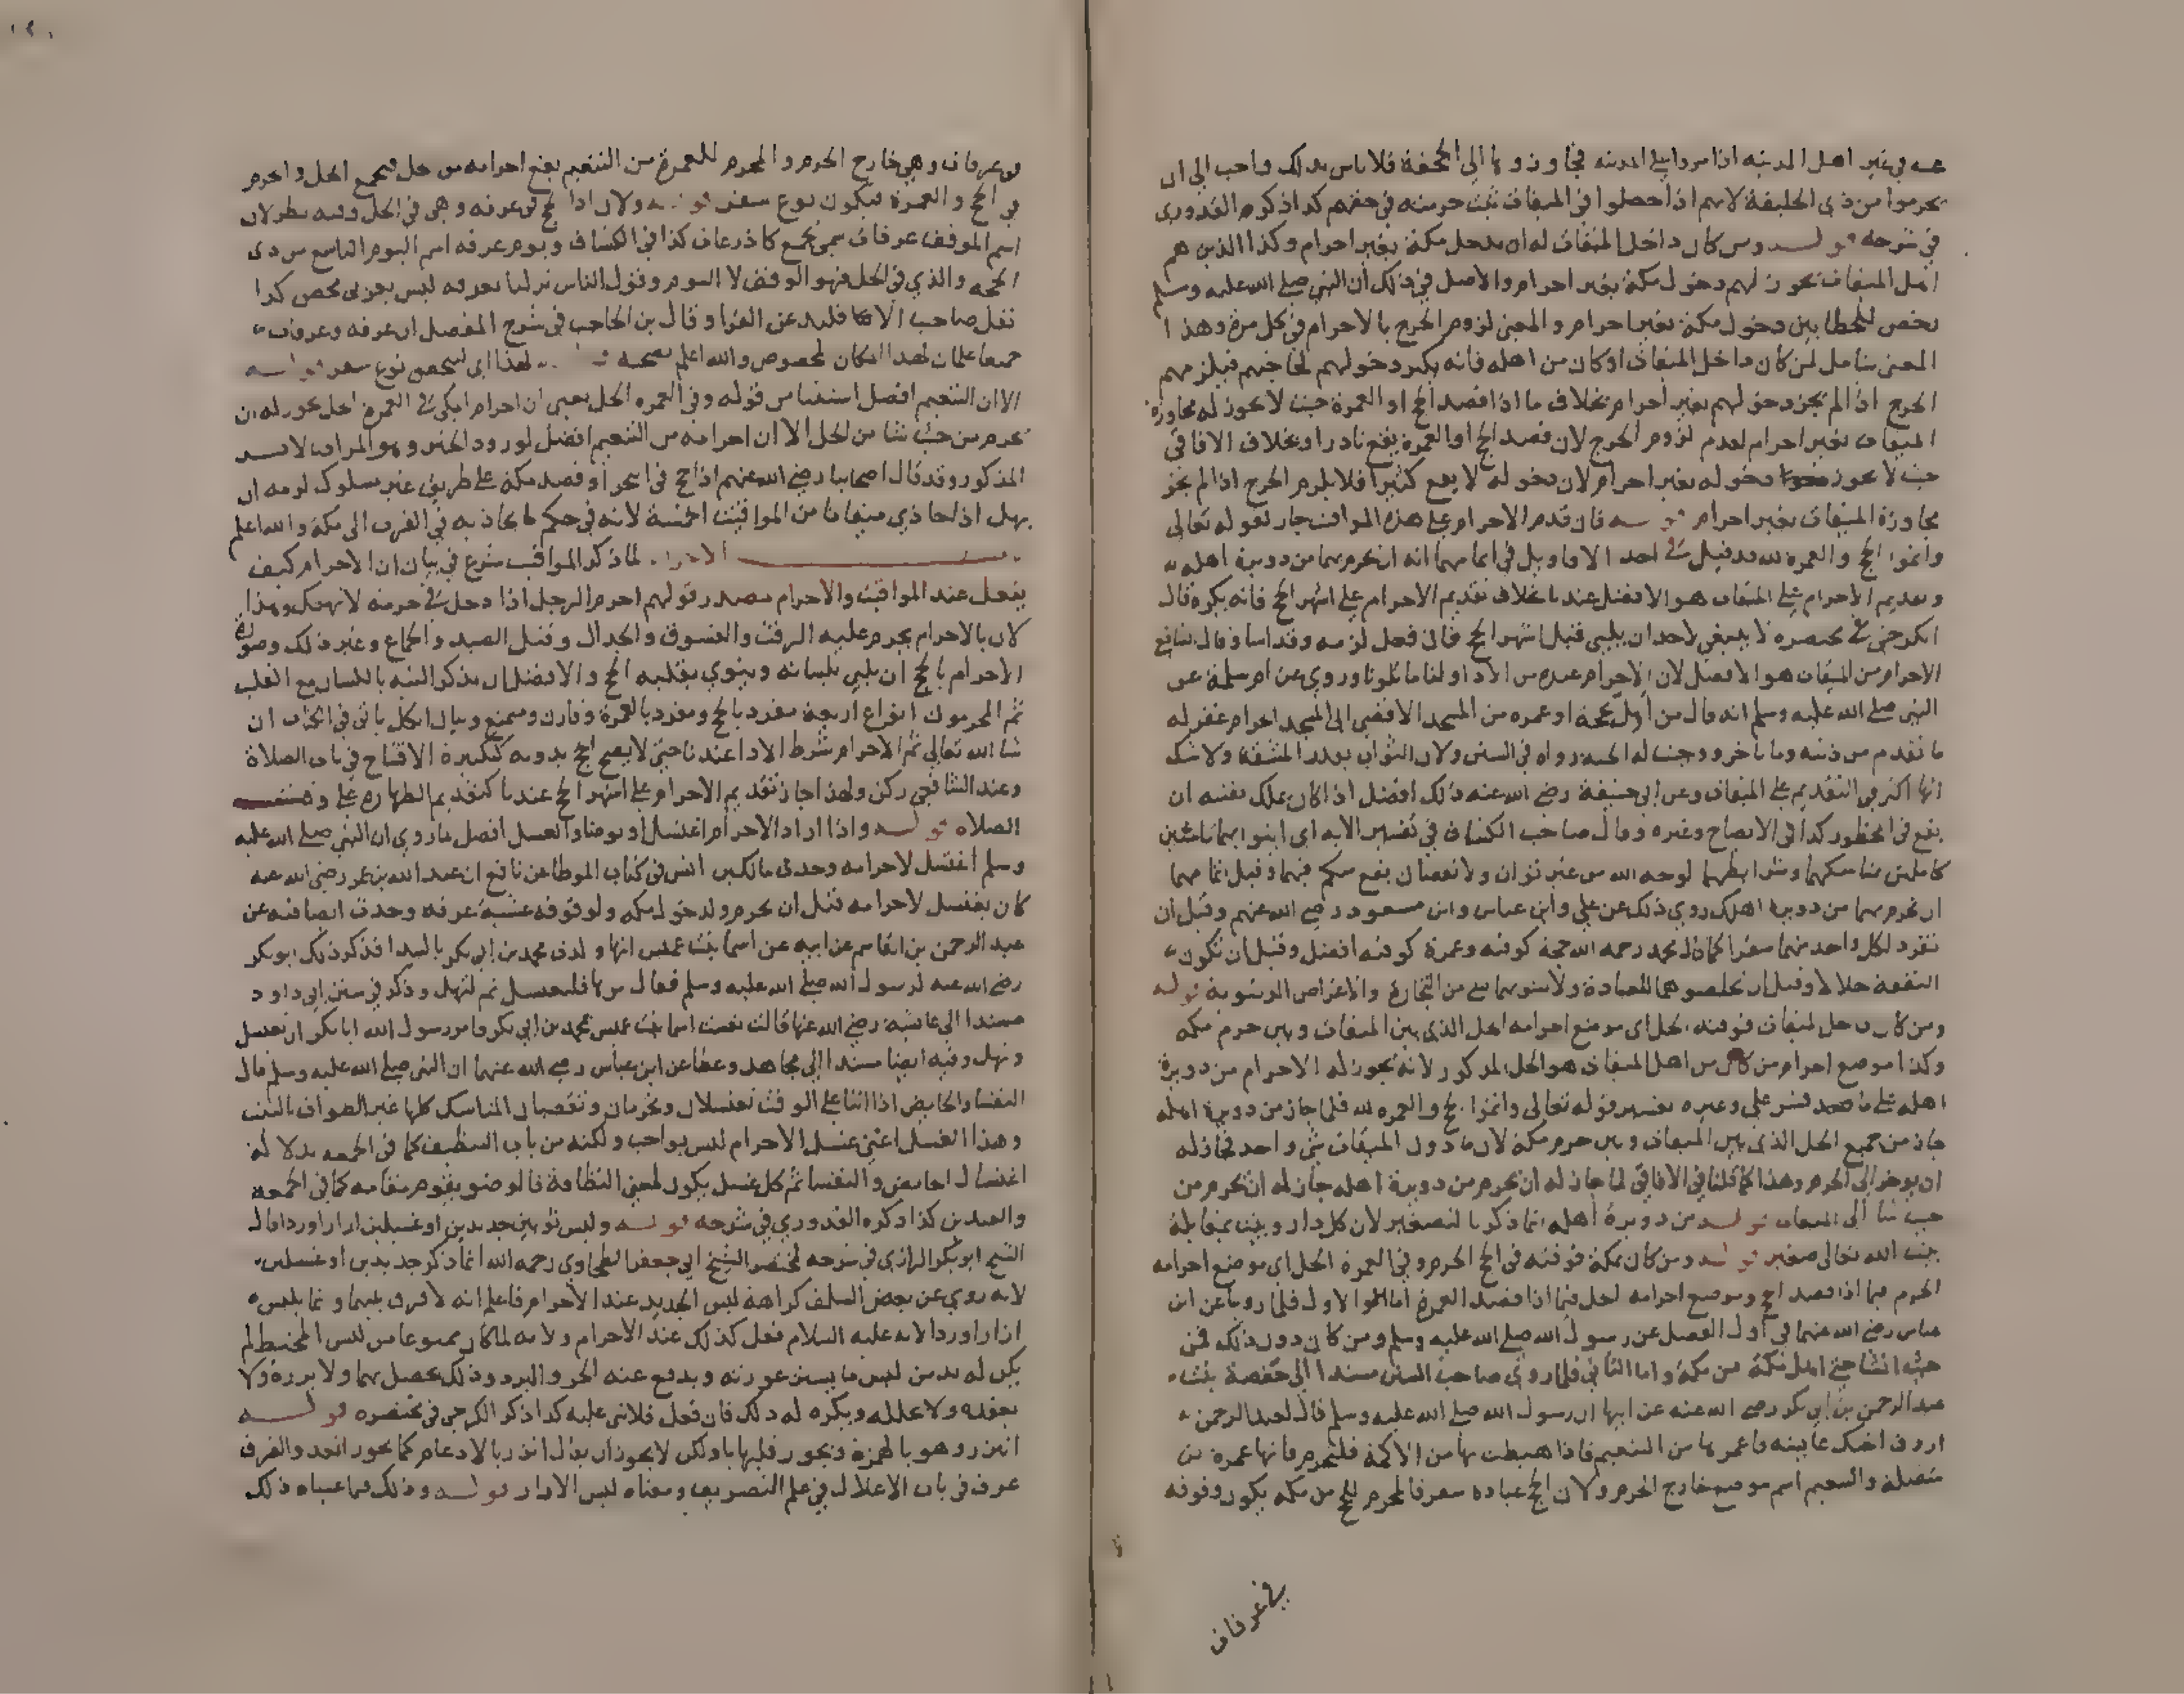 عنه في غير اهل المدينه اذا مروا على المدينه فجاوزوها الى الجحفة فلا باس بذلك واحب الي ان
يحرموا من ذي الحليفة لانهم اذا حصلوا في الميقات ثبت حرمته في حقهم كذا ذكره القدوري
في شرحه قوله ومن كان داخل الميقات له ان يدخل مكة بغير احرام وكذا الذين هم
اهل الميقات يجوز لهم دخول مكة بغير احرام والاصل في ذلك ان النبي صلى الله عليه وسلم
رخص للحطابين دخول مكة بغير احرام والمعنى لزوم الحرج بالاحرام في كل مرة وهذا
المعنى شامل لمن كان داخل الميقات او كان من اهله فانه يكثر دخولهم لحاجتهم فيلزمهم
الحرج اذا لم يجز دخولهم بغير احرام بخلاف ما اذا قصد الحج او العمرة حيث لا يجوز له مجاوزة
الميقات بغير احرام لعدم لزوم الحرج لان قصد الحج او العمرة يقع نادرا وبخلاف الافاقي
حيث لا يجوز دخوله بغير احرام لان دخوله لا يقع كثيرا فلا يلزم الحرج اذا لم يجز
مجاوزة الميقات بغير احرام قوله فان قدم الاحرام على هذه المواقيت جاز لقوله تعالى
واتموا الحج والعمرة لله قيل في احد الاقاويل في اتمامهما انه ان يحرم بهما من دويرة اهله
وتقديم الاحرام على الميقات هو الافضل عندنا بخلاف تقديم الاحرام على اشهر الحج فانه يكره قال
الكرخي في مختصره لا ينبغي لاحد ان يلبي قبل اشهر الحج فان فعل لزمه وقد اسا وقال الشافعي
الاحرام من الميقات هو الافضل لان الاحرام عنده من الادا ولنا ما تلونا وروي عن ام سلمة عن
النبي صلى الله عليه وسلم انه قال من اهل بحجة او عمره من المسجد الاقصى الى المسجد الحرام غفر له
ما تقدم من ذنبه وما تاخر ووجبت له الجنة رواه في السنن ولان الثواب بقدر المشقة ولا شك
انها اكثر في التقديم على الميقات وعن ابي حنيفة رضي الله عنه ذلك افضل اذا كان يملك نفسه ان
يقع في المحظور كذا في الايضاح وغيره وقال صاحب الكشاف في تفسير الاية اي ايتوا بهما تامين
كاملين بمناسكهما وشرايطهما لوجه الله من غير توان ولا نقصان يقع منكم فيهما وقيل اتمامهما
ان تحرم بهما من دويرة اهلك روي ذلك عن علي وابن عباس وابن مسعود رضي الله عنهم وقيل ان
تفرد لكل واحد منهما سفرا كما قال محمد رحمه الله حجة كوفية وعمرة كوفية افضل وقيل ان تكون
النفقة حلالا وقيل ان تخلصوهما للعبادة ولا تشوبوهما بشي من التجارة والاغراض الدنيوية قوله
ومن كان داخل الميقات فوقته الحل اي موضع احرامه الحل الذي بين الميقات وبين حرم مكه
وكذا موضع احرام من كان من اهل الميقات هو الحل المذكور لانه يجوز له الاحرام من دويرة
اهله على ما فسر علي وغيره تفسير قوله تعالى واتموا الحج والعمره لله فلما جاز من دويرة اهله
جاز من جميع الحل الذي بين الميقات وبين حرم مكة لان ما دون الميقات شي واحد فجاز له
ان يوخر الى الحرم وهذا كما قلنا في الافاقي لما جاز له ان يحرم من دويرة اهله جاز له ان يحرم من
حيث شا الى الميقات قوله من دويرة اهله انما ذكر بالتصغير لان كل دار وبيت بمقابلة
بيت الله تعالى صغير قوله ومن كان بمكة فوقته في الحج الحرم وفي العمرة الحل اي موضع احرامه
الحرم فيما اذا قصد الحج وموضع احرامه الحل فيما اذا قصد العمرة اما الاول فلما روينا عن ابن
عباس رضي الله عنهما في اول الفصل عن رسول الله صلى الله عليه وسلم ومن كان دون ذلك فمن
حيث انشا حتى اهل مكة من مكة واما الثاني فلما روى صاحب السنن مسندا الى حفصة بنت
عبد الرحمن بن ابي بكر رضي الله عنه عن ابيها ان رسول الله صلى الله عليه وسلم قال لعبد الرحمن
اردف اختك عايشه فاعمرها من التنعيم فاذا هبطت بها من الاكمة فلتحرم فانها عمرة
متقبلة والتنعيم اسم موضع خارج الحرم ولان الحج عباده سفر فالمحرم للحج من مكه يكون وقوفه
في عرفات
في عرفات وهي خارج الحرم والمحرم للعمرة من التنعيم يقع احرامه من حل فيجمع الحل والحرم
في الحج والعمرة فيكون نوع سفر قوله ولان ادا الحج في عرفه وهي في الحل وفيه نظر لان
اسم الموقف عرفات سمي بجمع كاذرعات كذا في الكشاف ويوم عرفه اسم اليوم التاسع من ذي
الحجه والذي في الحل فهو الوقف لا اليوم وقول الناس نزلنا بعرفه ليس بعربي محض كذا
نقل صاحب الاقليد عن الفرا وقال بن الحاجب في شرح المفصل ان عرفه وعرفات
جميعا علمان لهذا المكان المخصوص والله اعلم بصحته لهذا اي لتحقق نوع سفر قوله
الا ان التنعيم افضل استثنا من قوله وفي العمره الحل يعني ان احرام المكي في العمرة الحل يجوز له ان
يحرم من حيث شا من الحل الا ان احرامه من التنعيم افضل لورود الخبر وهو
المذكور وقد قال اصحابنا رضي الله عنهم اذا حج في البحر او قصد مكة على طريق غير مسلوك لزمه ان
يهل اذا حاذى ميقاتا من المواقيت الخمسة لانه في حكم ما يحاذيه في القرب الى مكة والله اعلم
الاحرام لما ذكر المواقيت شرع في بيان ان الاحرام كيف
يفعل عند المواقيت والاحرام مصدر قولهم احرم الرجل اذا دخل في حرمة لا تهتك وهذا
لان بالاحرام يحرم عليه الرفث والفسوق والجدال وقتل الصيد والجماع وغير ذلك وصورة
الاحرام بالحج ان يلبي بلسانه وينوي بقلبه الحج والافضل ان يذكر النية باللسان مع القلب
ثم المحرمون انواع اربعة مفرد بالحج ومفرد بالعمرة وقارن ومتمتع وبيان الكل ياتي في الكتاب ان
شا الله تعالى ثم الاحرام شرط الادا عندنا حتى لا يصح الحج بدونه كتكبيرة الافتتاح في باب الصلاة
وعند الشافعي ركن ولهذا جاز تقديم الاحرام على اشهر الحج عندنا كتقديم الطهارة على وقت
الصلاه قوله واذا اراد الاحرام اغتسل او توضا والغسل افضل لما روي ان النبي صلى الله عليه
وسلم اغتسل لاحرامه وحدث مالك بن انس في كتاب الموطا عن نافع ان عبد الله بن عمر رضي الله عنه
كان يغتسل لاحرامه قبل ان يحرم ولدخول مكه ولوقوفه عشية عرفه وحدث ايضا فيه عن
عبد الرحمن بن القاسم عن ابيه عن اسما بنت عميس انها ولدت محمد بن ابي بكر بالبيدا فذكر ذلك ابو بكر
رضي الله عنه لرسول الله صلى الله عليه وسلم فقال مرها فلتغتسل ثم لتهل وذكر في سنن ابي داود
مسندا الى عايشه رضي الله عنها قالت نفست اسما بنت عميس بمحمد بن ابي بكر فامر رسول الله ابا بكر ان تغتسل
وتهل وفيه ايضا مسندا الى مجاهد وعطا عن ابن عباس رضي الله عنهما ان النبي صلى الله عليه وسلم قال
النفسا والحايض اذا اتتا على الوقت تغتسلان وتحرمان وتقضيان المناسك كلها غير الطواف بالبيت
وهذا الغسل اعني غسل الاحرام ليس بواجب ولكنه من باب التنظيف كما في الجمعه بدلالة
اغتسال الحايض والنفسا ثم كل غسل يكون لمعنى النظافة فالوضو يقوم مقامه كما في الجمعه
والعيدين كذا ذكره القدوري في شرحه قوله ولبس ثوبين جديدين او غسيلين ازارا وردا قال
الشيخ ابو بكر الرازي في شرحه لمختصر الشيخ ابي جعفر الطحاوي رحمه الله انما ذكر جديدين او غسيلين
لانه روي عن بعض السلف كراهة لبس الجديد عند الاحرام فاعلم انه لا فرق بينهما وانما يلبس
ازارا وردا لانه عليه السلام فعل كذلك عند الاحرام ولانه لما كان ممنوعا من لبس المخيط لم
يكن له بد من لبس ما يستر عورته ويدفع عنه الحر والبرد وذلك يحصل بهما ولا يزره ولا
يعقده ولا يخلله ويكره له ذلك فان فعل فلا شي عليه كذا ذكر الكرخي في مختصره قوله
اتزر وهو بالهمزة ويجوز قلبها يا ولكن لا يجوز ان يقال اتزر بالادغام كما يجوز اتعد والفرق
عرف في باب الاعلال في علم التصريف ومعناه لبس الازار قوله وذلك فيما عيناه ذلك